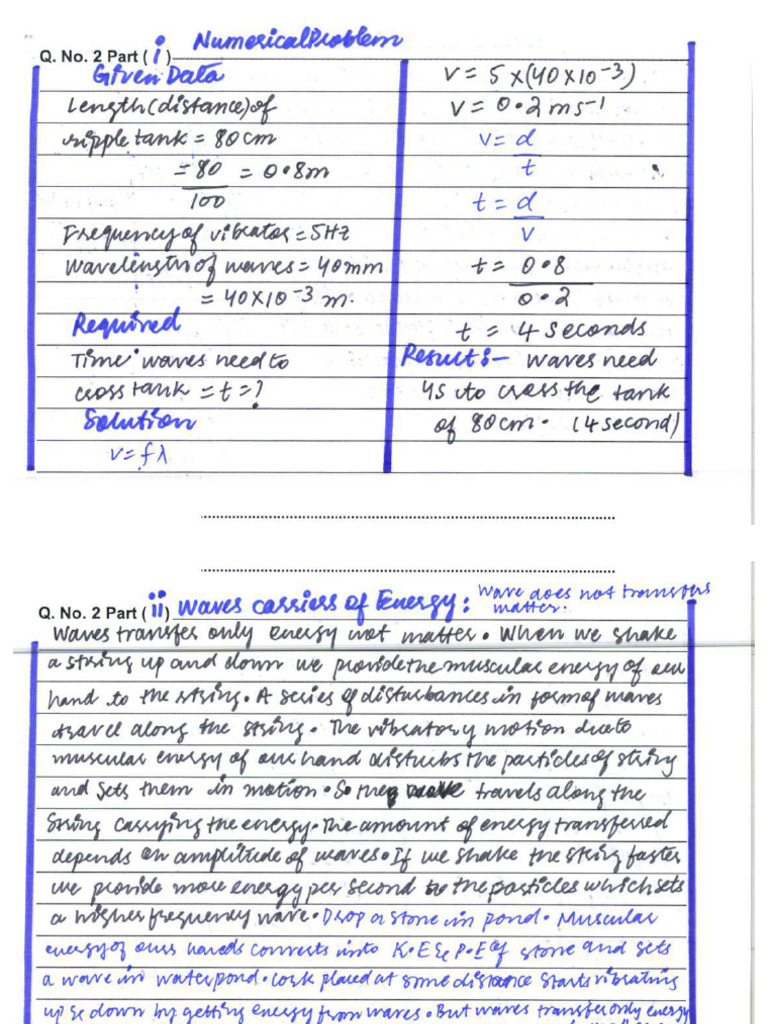 Q. No. 2 Part ( i ) Numerical Problem
Given Data
Length (distance) of
ripple tank = 80 cm
= 80 = 0.8m
100
Frequency of vibrator = 5Hz
Wavelength of waves = 40mm
= 40×10⁻³ m.
Required
Time waves need to
cross tank = t = ?
Solution
v = fλ
v = 5 × (40×10⁻³)
v = 0.2 ms⁻¹
v = d
t
t = d
v
t = 0.8
0.2
t = 4 seconds
Result:- waves need
4s to cross the tank
of 80cm. (4 second)
Q. No. 2 Part ( ii ) Waves carriers of Energy: Wave does not transfers
matter.
Waves transfer only energy not matter. When we shake
a string up and down we provide the muscular energy of our
hand to the string. A series of disturbances in form of waves
travel along the string. The vibratory motion due to
muscular energy of our hand disturbs the particles of string
and sets them in motion. So the wave travels along the
string carrying the energy. The amount of energy transferred
depends on amplitude of waves. If we shake the string faster
we provide more energy per second to the particles which sets
a higher frequency wave. Drop a stone in pond. Muscular
energy of ours hands converts into K.E & P.E of stone and sets
a wave in water pond. Cork placed at some distance starts vibrating
up & down by getting energy from waves. But waves transfer only energy